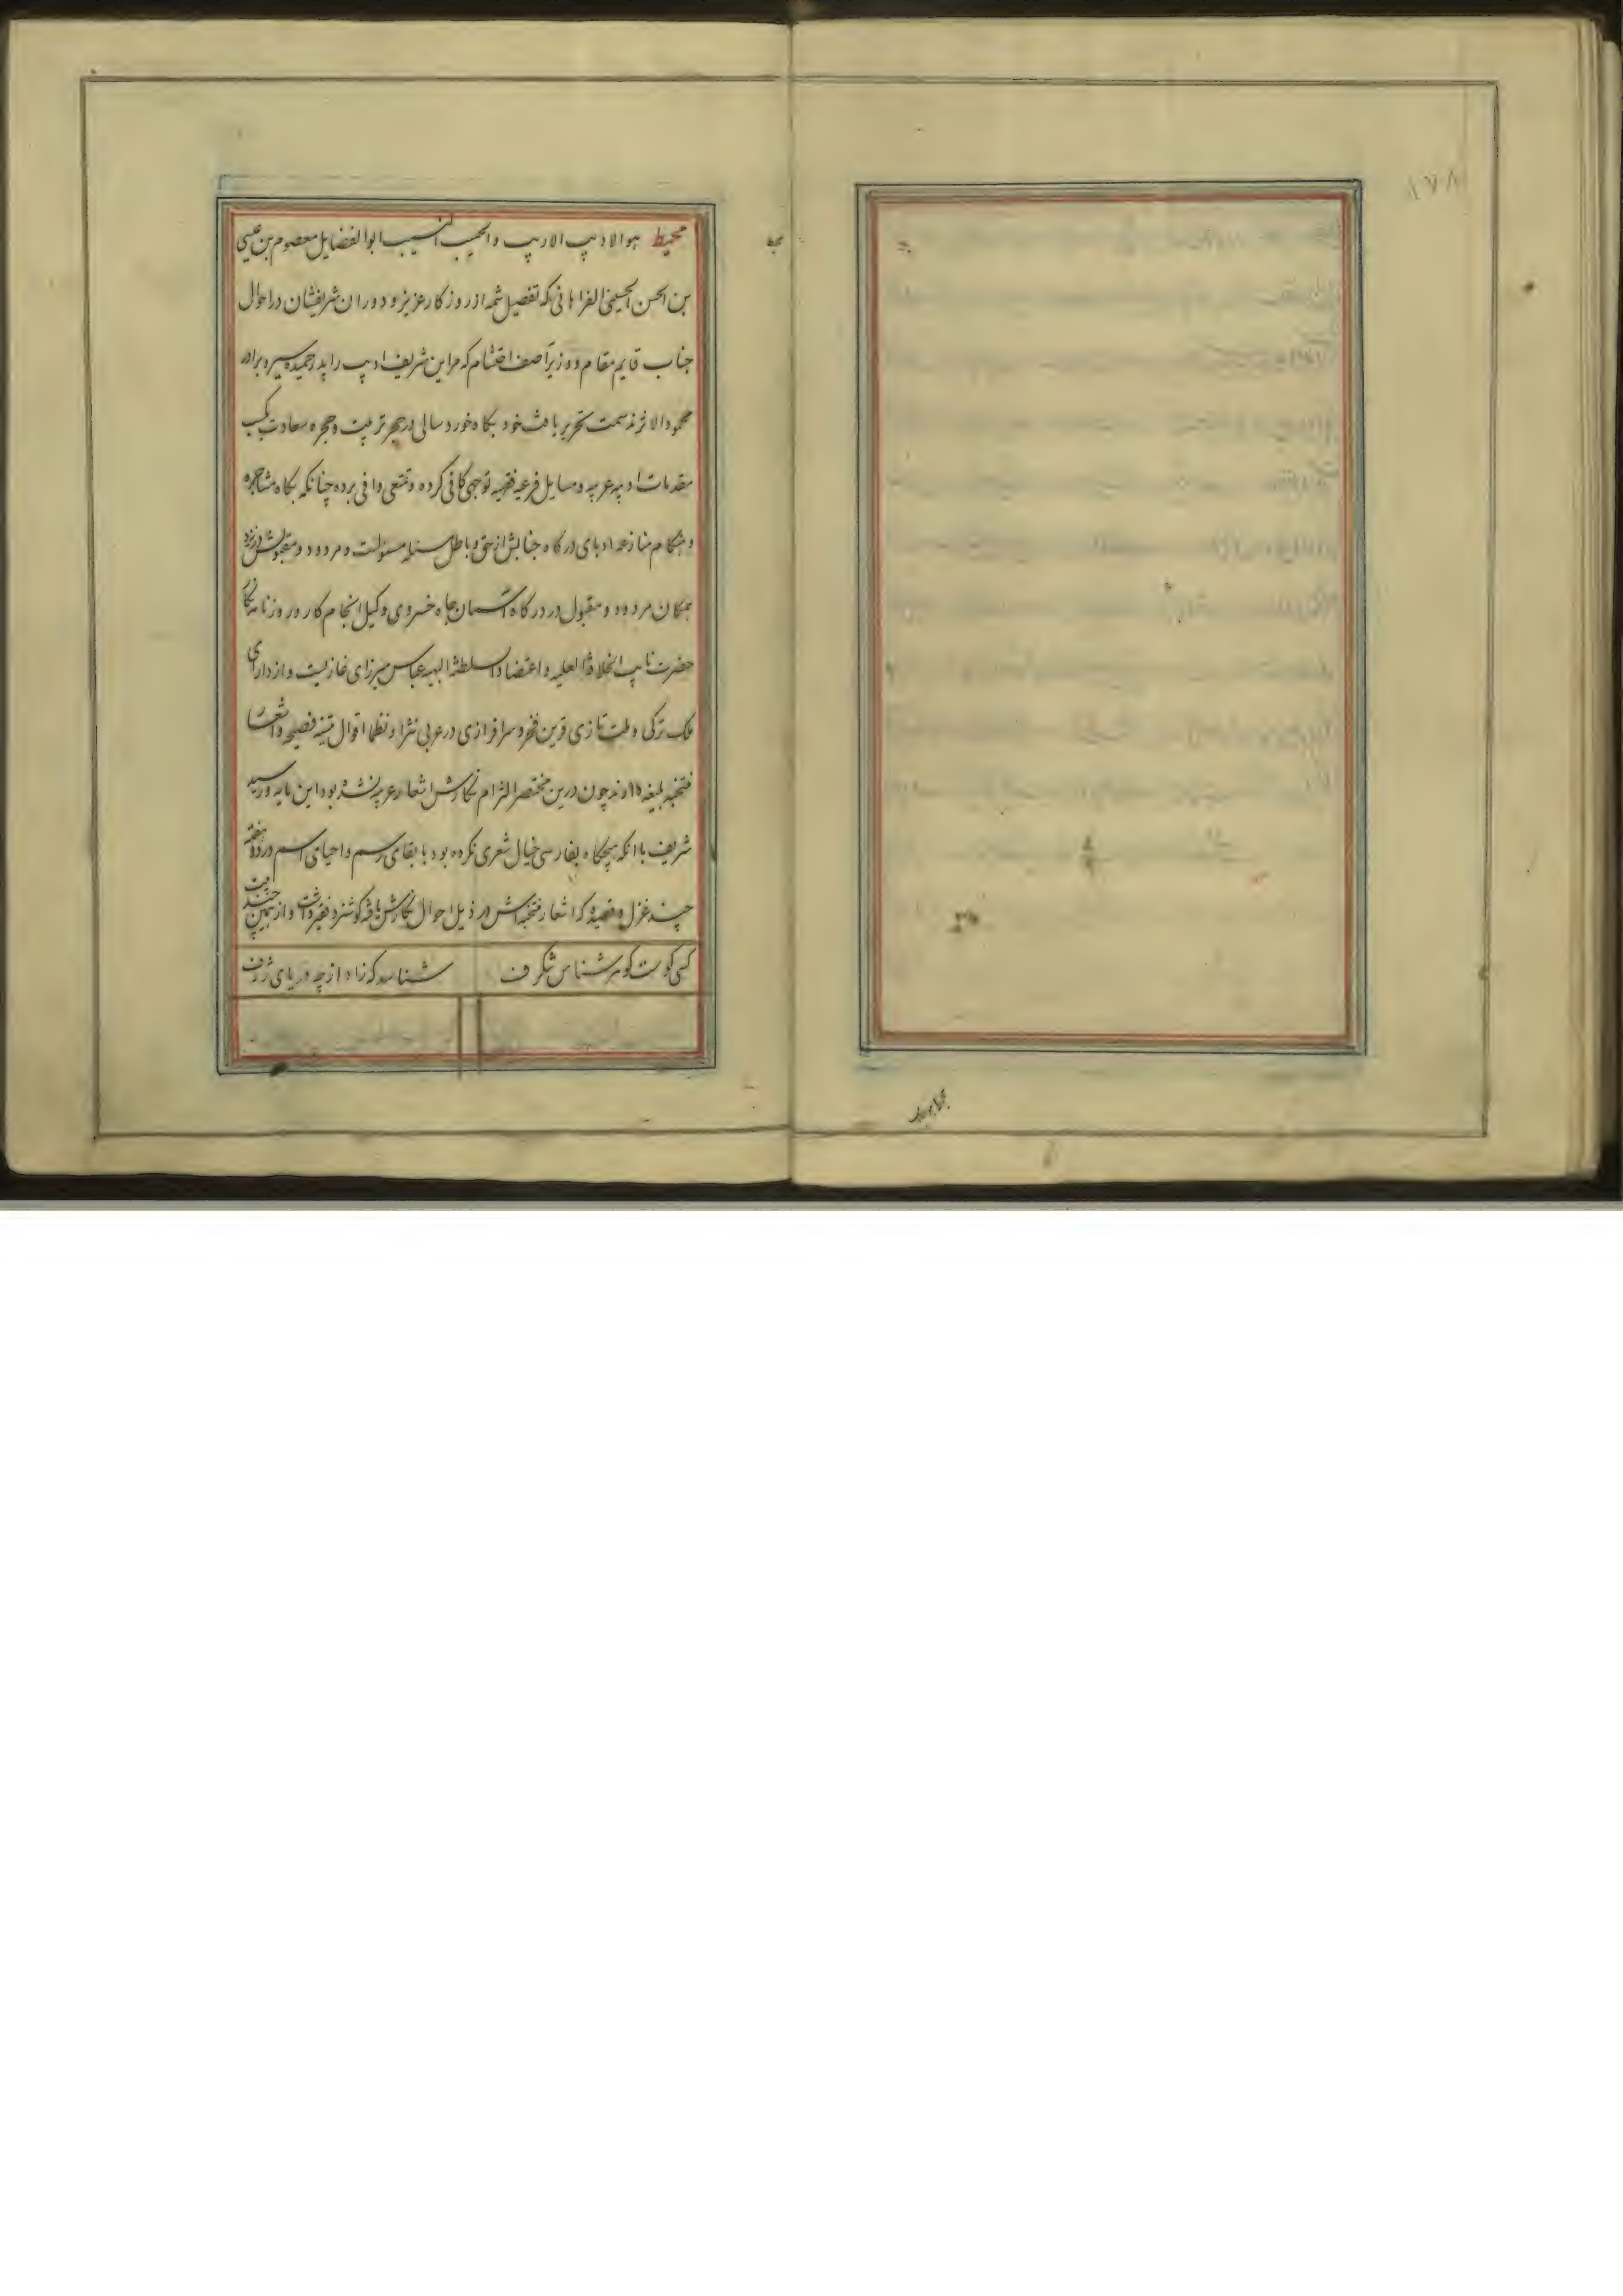 ۱۷۸
محیط هوالادیب الاریب والحسیب النسیب ابوالفضایل معصوم بن عیسی
بن الحسن الحسینی الفراهانی که تفصیل شمه از روزکار عزیز و دوران شریفشان در احوال
جناب قایم مقام و وزیر آصف احتشام که مر این شریف ادیب را پدر حمیده سیر و برادر
محمود الاثرند سمت تحریر یافت خود بکاه خوردسالی در حجر تربیت و حجره سعادت کسب
مقدمات ادبیه عربیه و مسایل فرعیه فقهیه توجهی کافی کرده و تمتعی وافی برده چنانکه بکاه مشاجره
و هنکام منازعه ادبای درکاه جنابش از حق و باطل مسئله مسئولست و مردود و مقبولش در نزد
همکان مردود و مقبول در درکاه آسمان جاه خسروی وکیل انجام کار و روزنامه نکار
حضرت نایب الخلافة العلیه و اعتضاد السلطنة البهیه عباس میرزای غازیست و از دارای
ملک ترکی و ملت تازی قرین فخر و سرافرازی در عربی نثرا و نظما اقوال متینه فصیحه و اشعار
منتخبه بلیغه دارند چون درین مختصر التزام نکارش اشعار عربیه نشده بود این مایه ور سید
شریف با انکه هیچکاه بفارسی خیال شعری نکرده بود با بقای رسم و احیای اسم در دو هفته
چند غزل و قصیده که اشعار منتخبه‌اش در ذیل احوال نکارش یافته کوشزد فقیر داشت و از همین چند بیت
کسی کوست کوهر شناس شکرف
شناسد که زاد از چه دریای ژرف